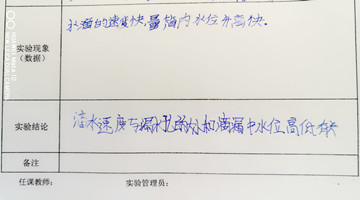 水滴的速度快,量筒内水位升高快.
实验现象
(数据)
实验结论
滴水速度与漏水孔的大小和滴漏中水位高低有关
备注
任课教师: 实验管理员: